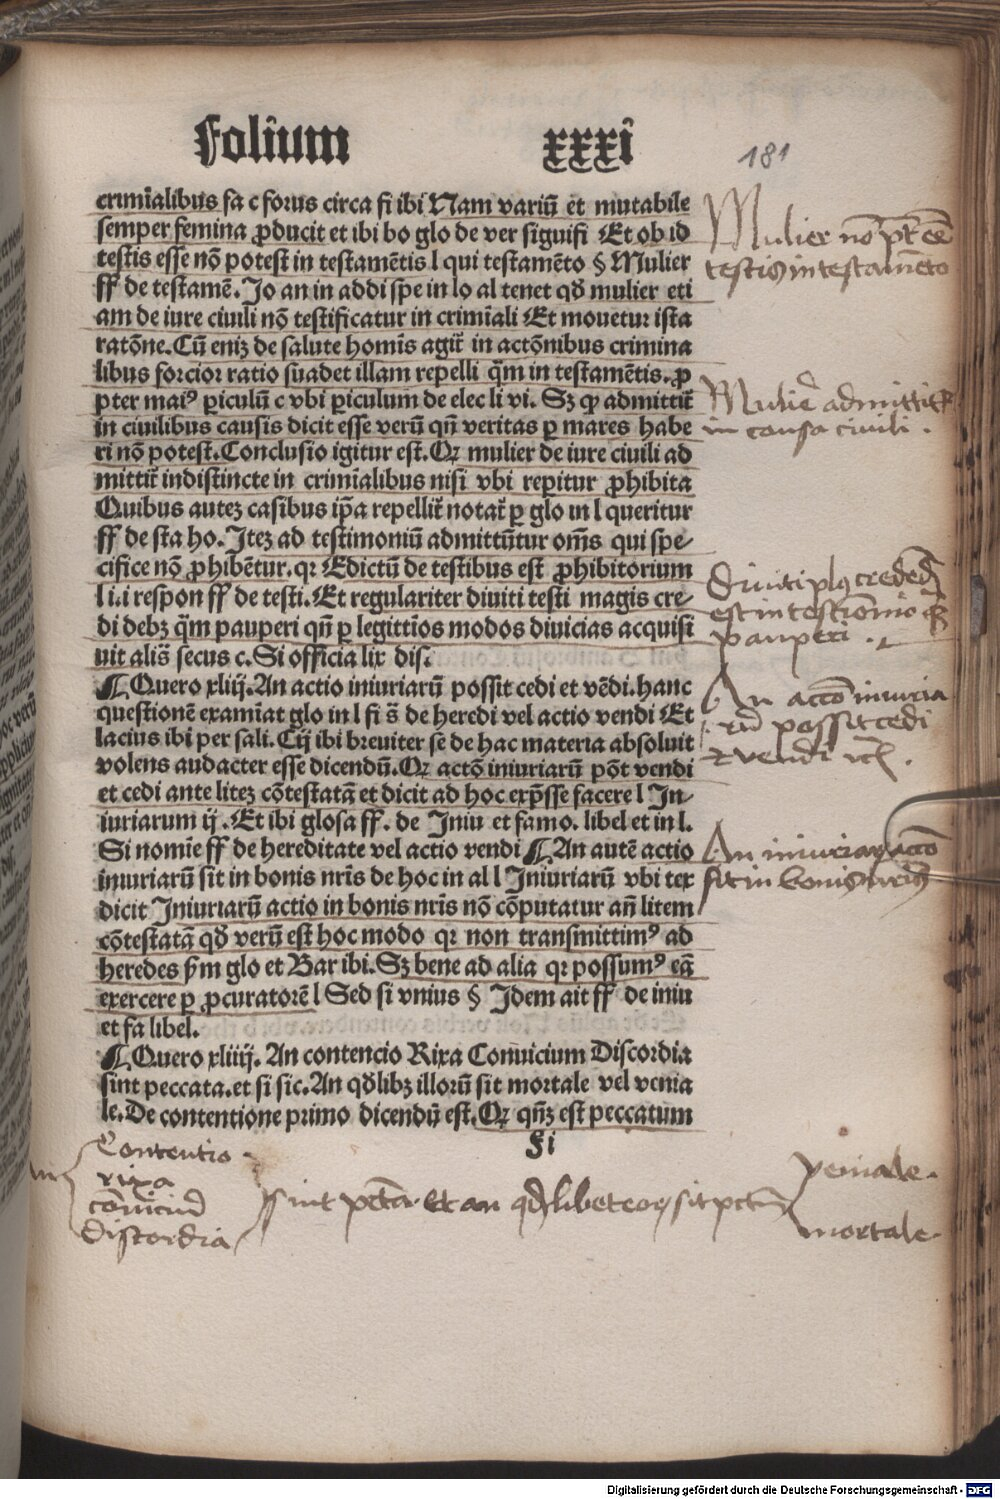 Folium xxxi
181
crimīalibus fa c forus circa fi ibi Nam variū et mutabile
semper femina ꝓducit et ibi bo glo de ver siguifi Et ob id
testis esse nō potest in testamētis l qui testamēto § Mulier
ff de testamē. Jo an in addi spe in lo al tenet qđ mulier eti
am de iure ciuili nō testificatur in crimīali Et mouetur ista
ratōne. Cū eniꝫ de salute homīs agit᷑ in actōnibus crimina
libus forcior ratio suadet illam repelli q̄m in testamētis. ꝓ
pter maiꝰ ꝑiculū c vbi ꝑiculum de elec li vi. Sꝫ ꝙ admittit᷑
in ciuilibus causis dicit esse verū qn̄ veritas ꝑ mares habe
ri nō potest. Conclusio igitur est. Qꝛ mulier de iure ciuili ad
mittit᷑ indistincte in crimīalibus nisi vbi reꝑitur ꝓhibita
Quibus auteꝫ casibus ip̄a repellit᷑ notat᷑ ꝑ glo in l queritur
ff de sta ho. Iteꝫ ad testimoniū admittūtur om̄s qui spe⸗
cifice nō ꝓhibētur. qꝛ Edictū de testibus est ꝓhibitorium
l i.i respon ff de testi. Et regulariter diuiti testi magis cre⸗
di debꝫ q̄m pauperi qn̄ ꝑ legittīos modos diuicias acquisi
uit alis̄ secus c. Si officia lix dis.
¶ Quero xliij. An actio iniuriarū possit cedi et vēdi. hanc
questionē examīat glo in l fi s̄ de heredi vel actio vendi Et
lacius ibi per sali. Cij ibi breuiter se de hac materia absoluit
volens audacter esse dicendū. Qꝛ actō iniuriarū pōt vendi
et cedi ante liteꝫ cōtestatā et dicit ad hoc exp̄sse facere l In⸗
iuriarum ij. Et ibi glosa ff. de Iniu et famo. libel et in l.
Si nomīe ff de hereditate vel actio vendi ¶ An autē actio
iniuriarū sit in bonis nr̄is de hoc in al l Iniuriarū vbi tex
dicit Iniuriarū actio in bonis nr̄is nō cōputatur an̄ litem
cōtestatā qđ verū est hoc modo qꝛ non transmittimꝰ ad
heredes ẜm glo et Bar ibi. Sꝫ bene ad alia qꝛ possumꝰ eā
exercere ꝑ ꝓcuratorē l Sed si vnius § Idem ait ff de iniu
et fa libel.
¶ Quero xliiij. An contencio Rixa Conuicium Discordia
sint peccata. et si sic. An qđlibꝫ illorū sit mortale vel venia
le. De contentione primo dicendū est. Qꝛ qn̄ꝫ est peccatum
Fi
Mulier nō pt̄ eē
testis in testamēto
Mulier admittit᷑
in causa ciuili.
Diuiti plꝰ
est in testimonio
pauperi.
An actō iniuria
rū possit cedi
et vendi
An iniuriarꝝ actō
sit in bonis nr̄is
Contentio
rixa
cōuiciū
discordia
sint pctā. Et an qđlibet eoꝝ sit pctm̄
veniale.
mortale.
Digitalisierung gefördert durch die Deutsche Forschungsgemeinschaft - DFG